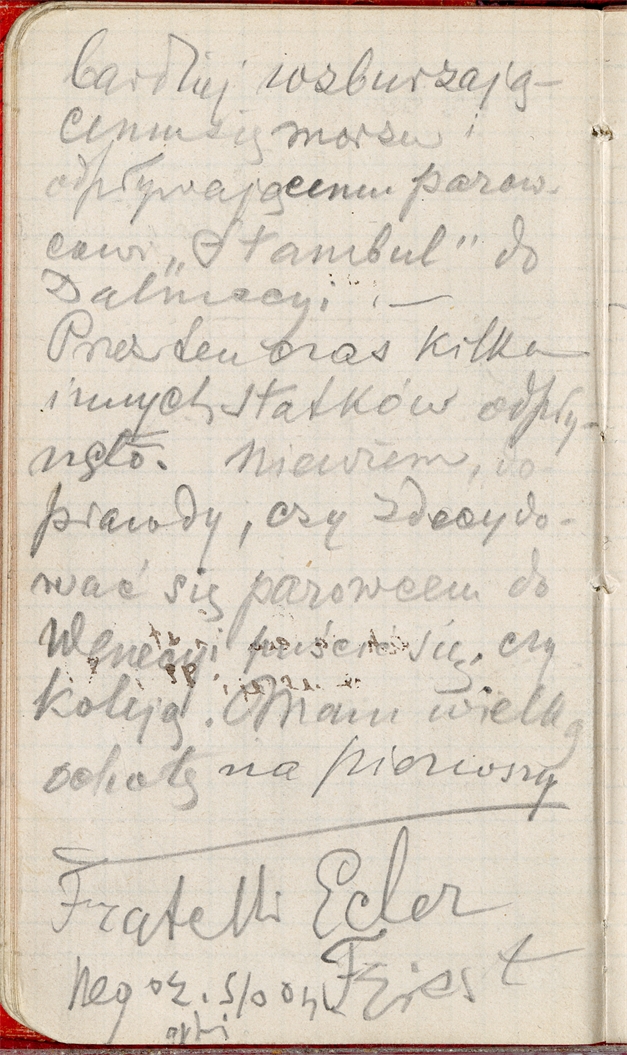 bardziej wzburzają-
cemu się morzu i
odpływającemu parow-
cowi „Stambul" do
Dalmacyi. —
Przez ten czas kilka
innych statków odpły-
nęło. Niewiem, do-
prawdy, czy zdecydo-
wać się parowcem do
Wenecyi puścić się, czy
koleją. Mam wielką
ochotę na pierwszy
Fratelli Ecler
Negoz.